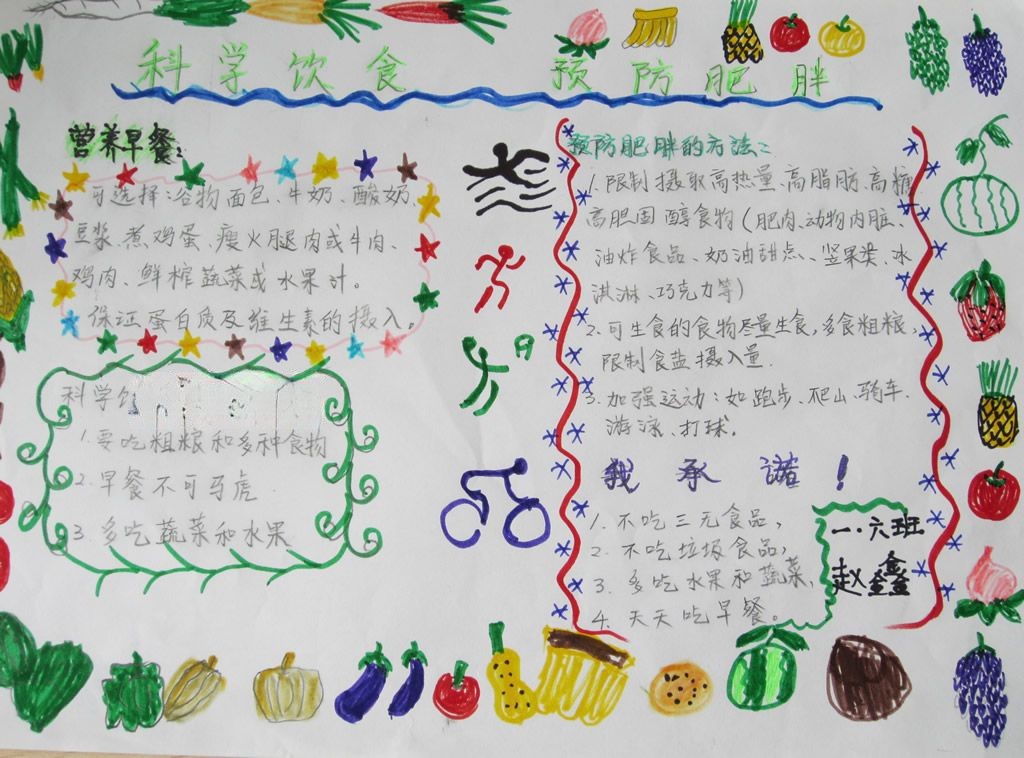 科学饮食 预防肥胖
营养早餐:
可选择:谷物面包、牛奶、酸奶、
豆浆、煮鸡蛋、瘦火腿肉或牛肉、
鸡肉、鲜榨蔬菜或水果汁。
保证蛋白质及维生素的摄入。
科学饮
1.要吃粗粮和多种食物
2.早餐不可马虎.
3.多吃蔬菜和水果
预防肥胖的方法:
1.限制摄取高热量、高脂肪、高糖
高胆固醇食物(肥肉、动物内脏、
油炸食品、奶油甜点、坚果类、冰
淇淋、巧克力等)
2.可生食的食物尽量生食,多食粗粮,
限制食盐摄入量.
3.加强运动:如跑步、爬山、骑车、
游泳、打球。
我承诺!
1.不吃三无食品,
2.不吃垃圾食品,
3.多吃水果和蔬菜,
4.天天吃早餐。
一·六班
赵鑫